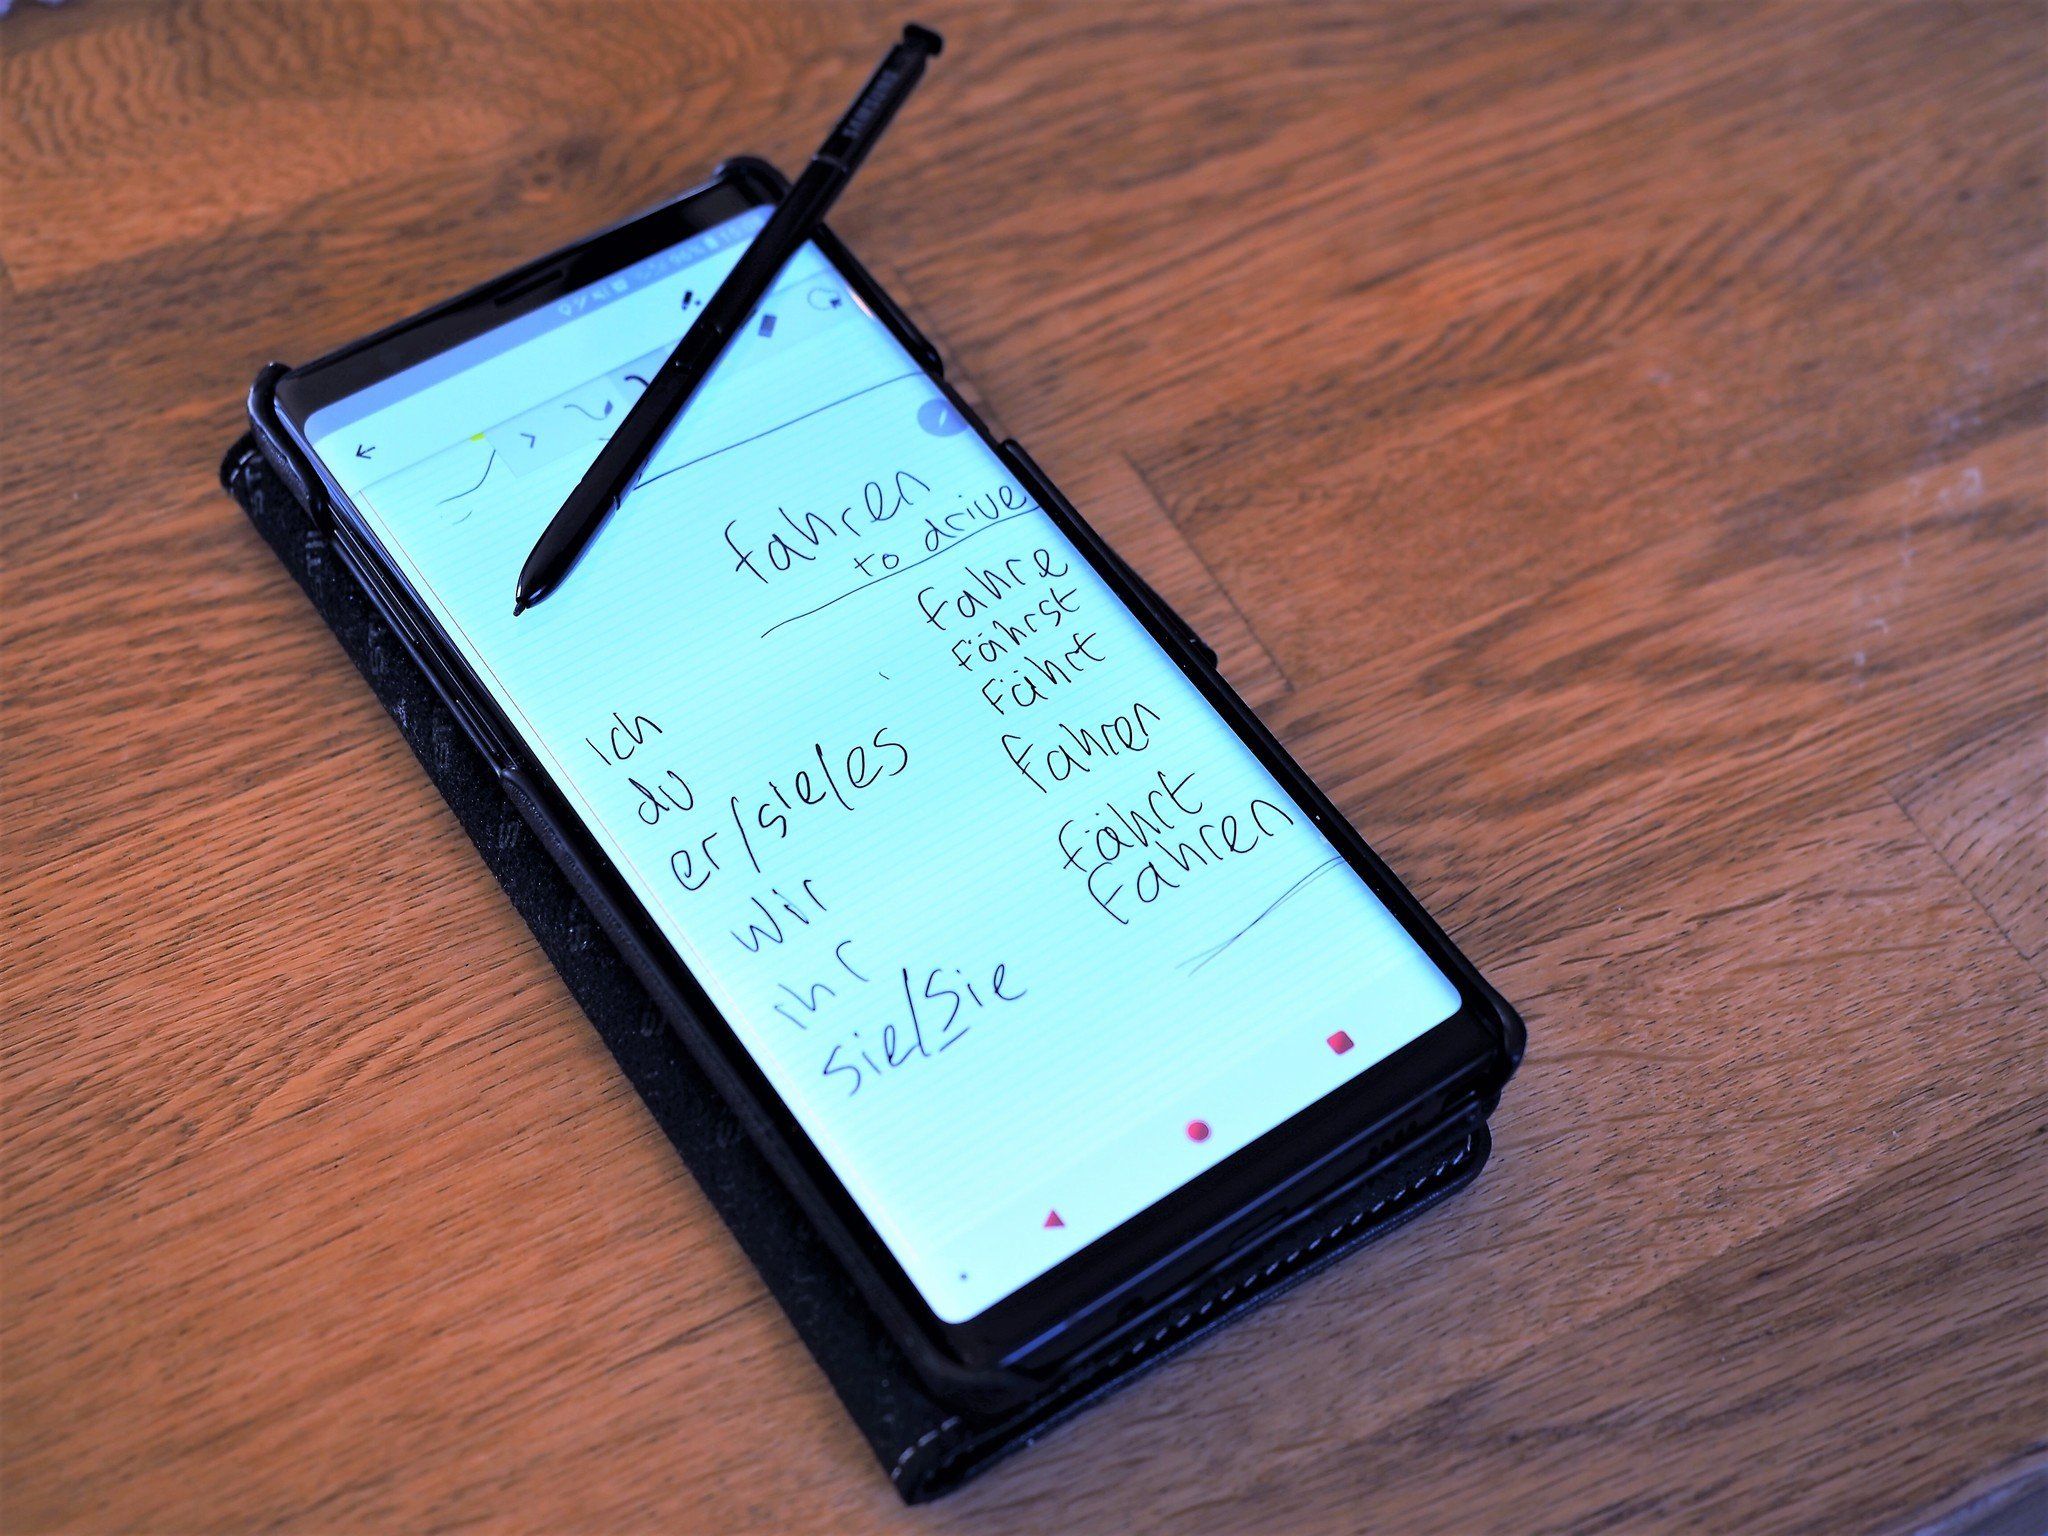 SAMSUNG
96%
fahren
to drive
ich fahre
du fährst
er/sie/es fährt
wir fahren
ihr fährt
sie/Sie fahren